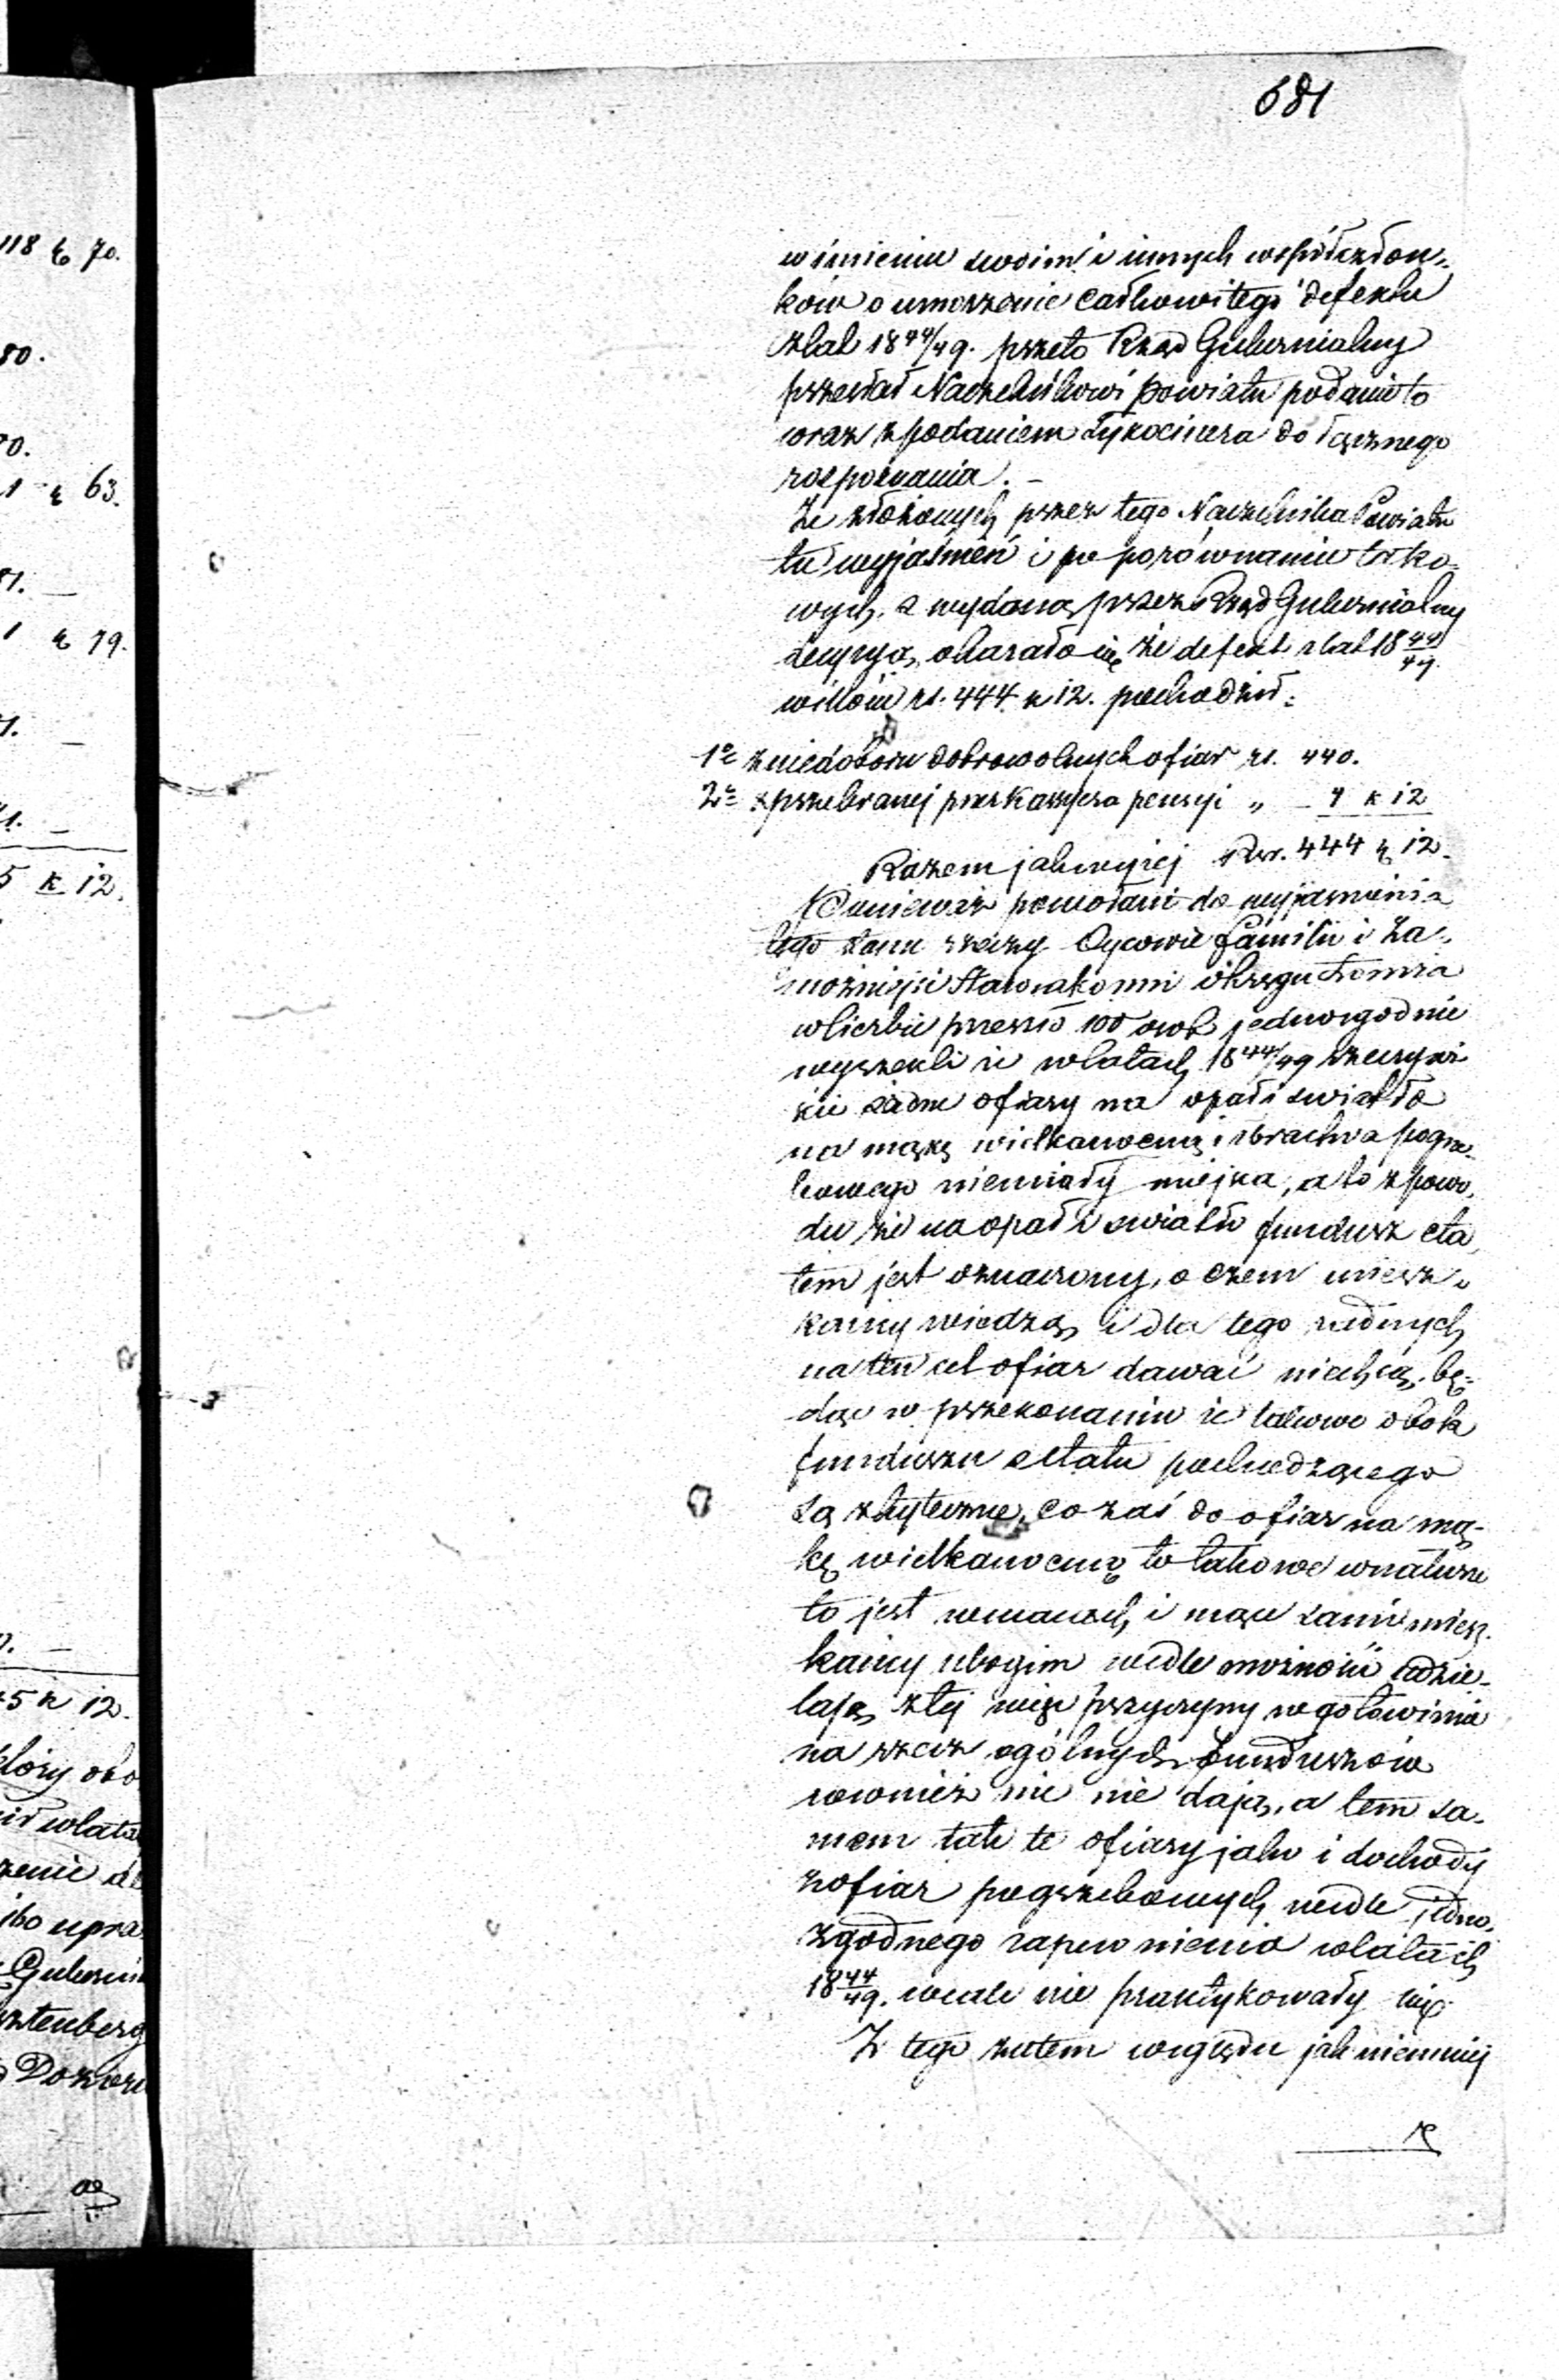 681
118 k 70.
80.
70.
1 k 63.
81. —
1 k 79.
1. —
41. —
5 k 12.
7. —
45 k 12.
który oko
wlata
zenie
ibo upra
Guberni
sztenberg
Dozoru
w imieniu swoim i innych współczłon-
ków o umorzenie całkowitego defektu
zlat 18⁴⁴/49. przeto Rząd Gubernialny
przesłał Naczelnikowi Powiatu podanie to
wraz z podaniem Tykocinera do łącznego
rozpoznania. —
Ze złożonych przez tego Naczelnika Powiatu
tu wyjaśnień i po porównaniu tako-
wych, z wydaną przez Rząd Gubernialny
decyzyą, okazało się że defekt zlat 18 44/49.
wilości rs. 444 k 12. pochodził:
1e z niedoboru dobrowolnych ofiar rs. 440.
2e z przebranej przez Kassyera pensyi „ — 4 k 12
Razem jak wyżej Rsr. 444 k 12.
Ponieważ powołani do wyjaśnienia
tego stanu rzeczy Oycowie familii i Za-
możniejsi Starozakonni okręgu Łomża
wliczbie przeszło 100 osób jednozgodnie
wyrzekli że wlatach 18⁴⁴/49 rzeczywi
ście żadne ofiary na opał i swiatło
na mąkę wielkanocną i zbractwa pogrze-
bowego niemiały miejsca, a to z powo-
du że na opał i swiatło fundusz eta-
tem jest oznaczony, o czem miesz-
kańcy wiedzą i dla tego żadnych
na ten cel ofiar dawać niechcą, bę-
dąc w przekonaniu że takowe obok
funduszu z etatu pochodzącego
są zbyteczne, co zaś do ofiar na mą-
kę wielkanocną to takowe wnaturze
to jest w macach i mące sami miesz-
kańcy ubogim wedle możności udzie-
lają, z tej więc przyczyny w gotowiźnie
na rzecz ogólnych funduszów
również nic nie dają, a tem sa-
mem tak te ofiary jako i dochody
z ofiar pogrzebowych wedle jedno-
zgodnego zapewnienia wlatach
18 44/49. wcale nie praktykowały się.
Z tego zatem względu jak niemniej